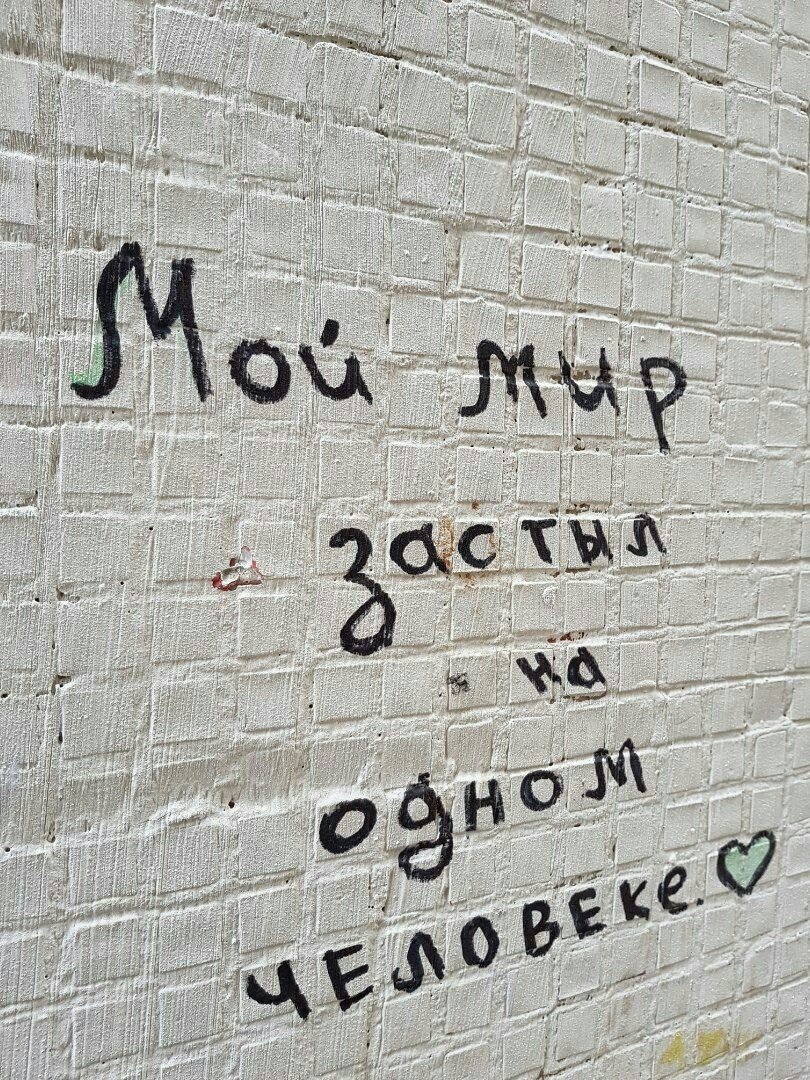 Мой мир
застыл
на
одном
ЧЕЛОВЕКе.